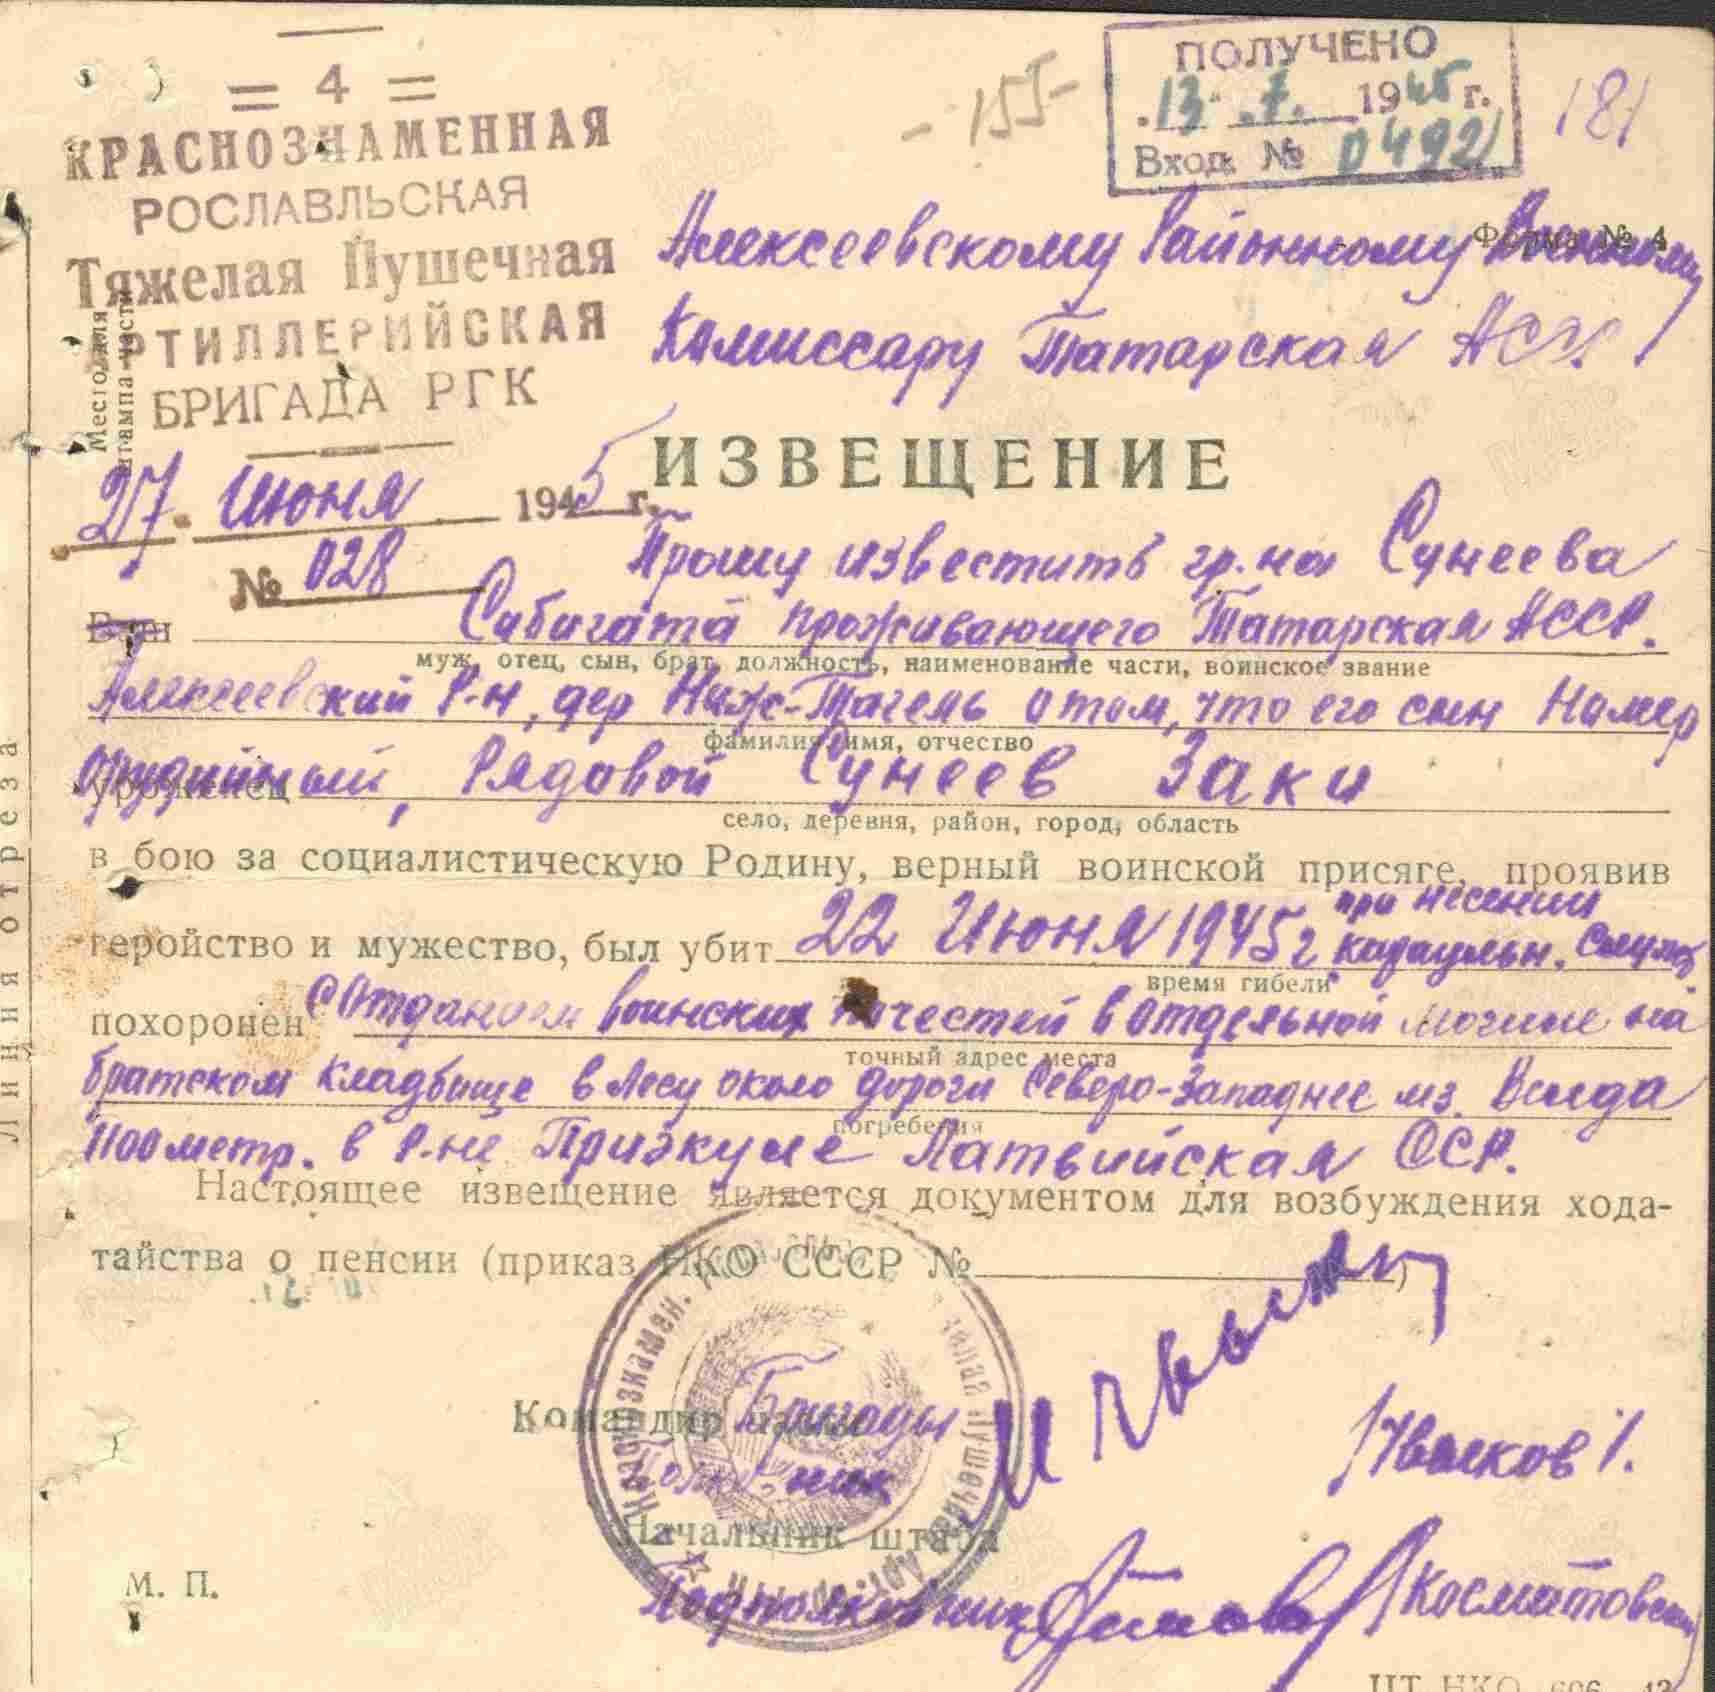 = 4 =
КРАСНОЗНАМЕННАЯ
РОСЛАВЛЬСКАЯ
Тяжелая Пушечная
АРТИЛЛЕРИЙСКАЯ
БРИГАДА РГК
Место для
штампа части
27 Июня 1945 г.
№ 028
- 155 -
ПОЛУЧЕНО
13. 7. 1945 г.
Вход. № 0492
181
Форма № 4
Алексеевскому Районному Военному
Комиссару Татарская АССР
ИЗВЕЩЕНИЕ
Прошу известить гр.на Сунеева
Ваш Сабигата проживающего Татарская АССР.
муж, отец, сын, брат, должность, наименование части, воинское звание
Алексеевский Р-н, дер Ниж-Тагель о том, что его сын Номер
фамилия, имя, отчество
орудийный, Рядовой Сунеев Заки
уроженец
село, деревня, район, город, область
в бою за социалистическую Родину, верный воинской присяге, проявив
геройство и мужество, был убит 22 Июня 1945 г при несении караульн. служб
время гибели
похоронен с отданием воинских почестей в отдельной могиле на
точный адрес места
братском кладбище в лесу около дороги Северо-Западнее мз.
погребения
1100 метр. в Р-не Приэкуле Латвийская ССР.
Настоящее извещение является документом для возбуждения хода-
тайства о пенсии (приказ НКО СССР № )
Командир части Бригады
Полковник
Начальник штаба
Подполковник
М. П.
Линия отреза